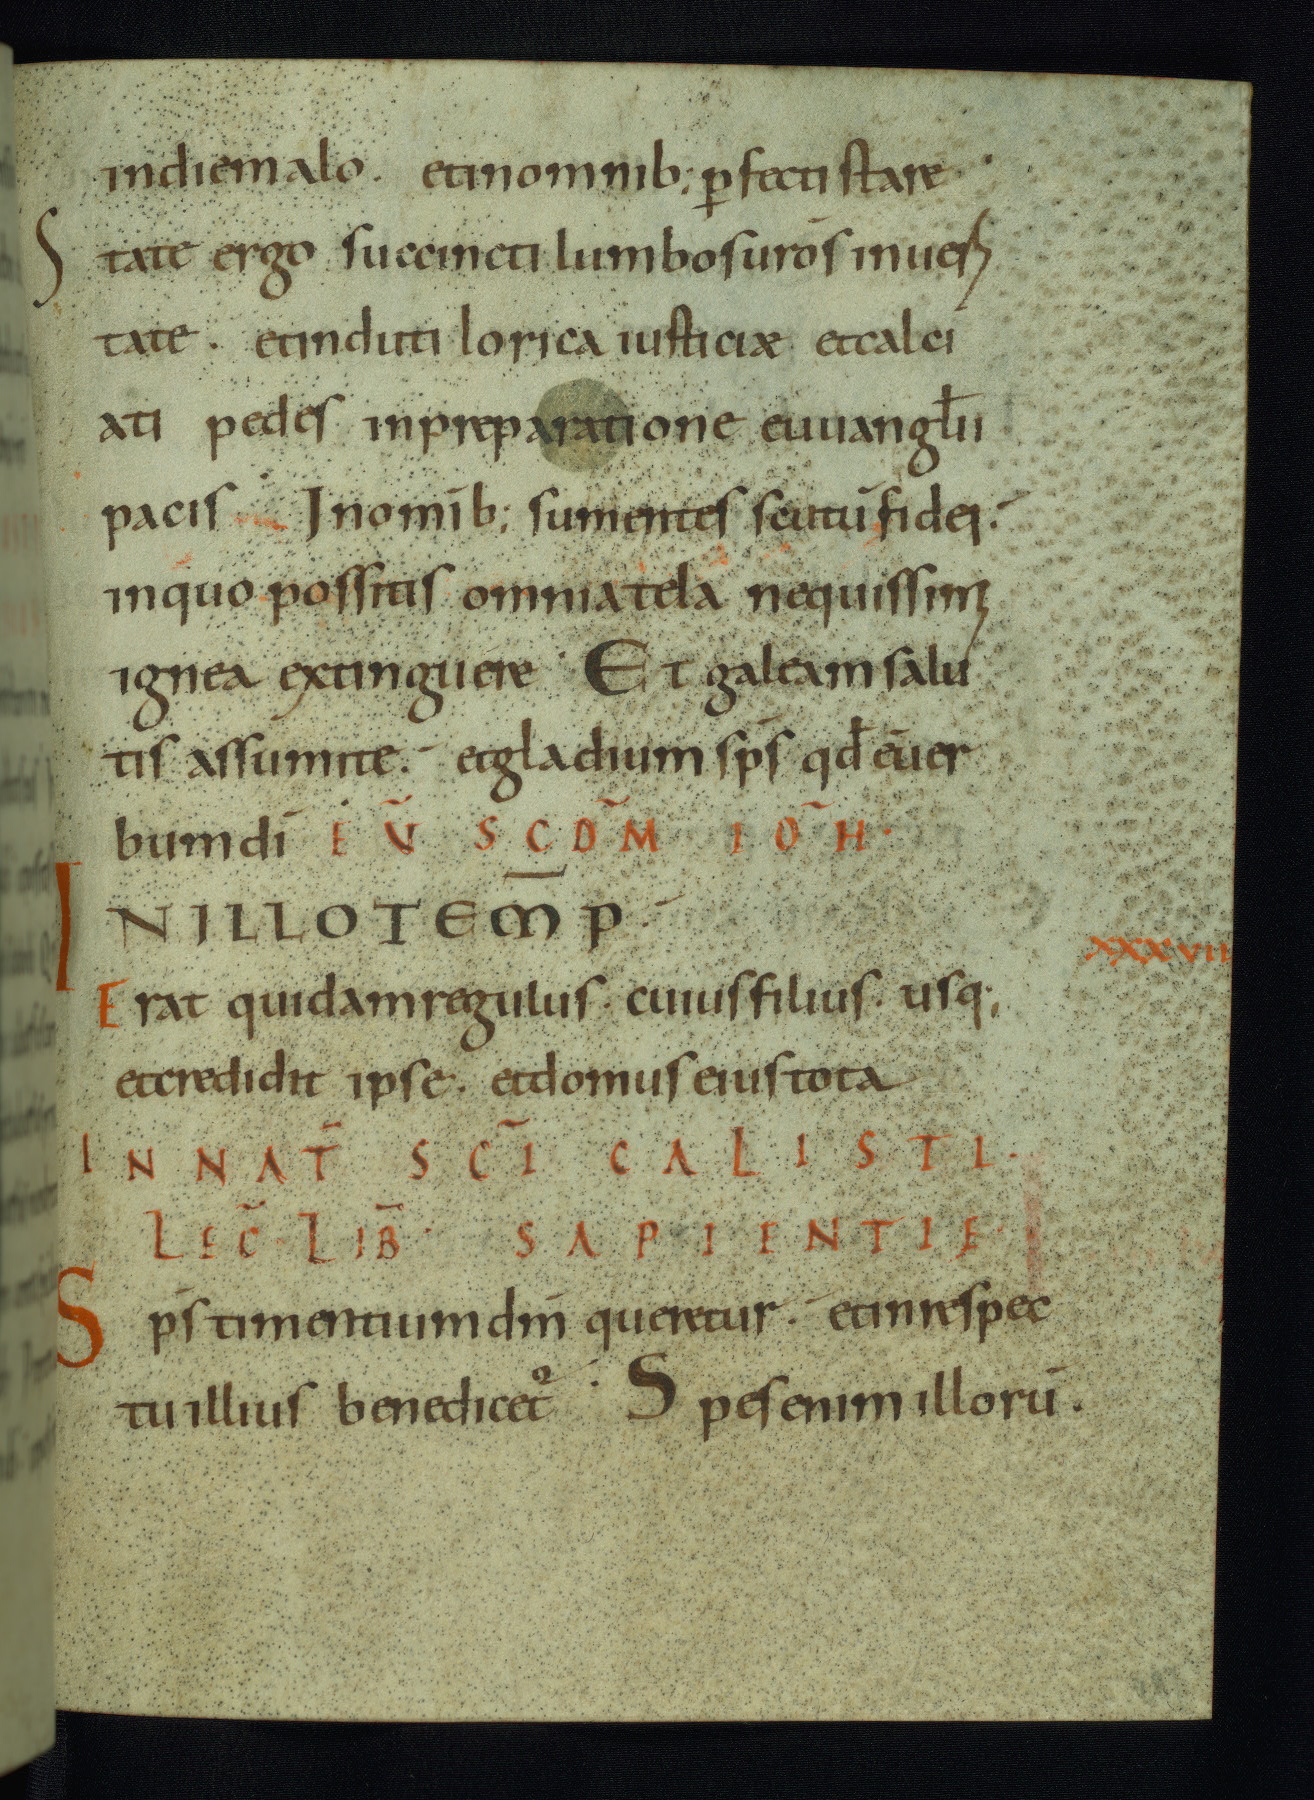 indiemalo. etinomnib; ꝑfecti stare
State ergo succincti lumbosurōs inueri
tate. etinduti lorica iusticiæ etcalci
ati pedes inpreparatione euuangłii
pacis Inomīb; sumentes scutū fidei.
inquo possitis omnia tela nequissimi
ignea extinguere Et galeam salu
tis assumite. etgladium sp̄s qđ ēuer
bumdī EṼ SCD̃M IOH̃.
INILLOTEM̄P.
XXXVII
Erat quidamregulus. cuiusfilius. usq;
etcredidit ipse. etdomus eius tota
INNAT̄ SC̄I CALISTI.
LEC̃. LIB̃. SAPIENTIE.
Sp̄s timentiumdn̄m queretur. etinrespec
tuillius benedicet᷒ Spesenim illorū.